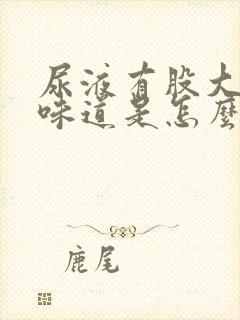 尿液有股大
味道是怎麼
鹿尾